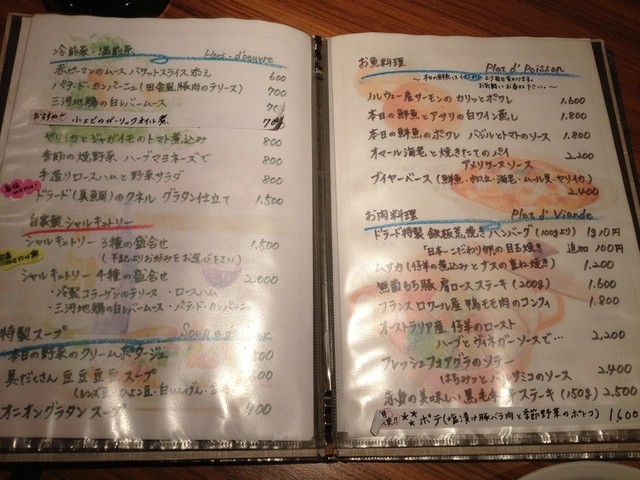 冷前菜・温前菜 Hors-d'oeuvre
赤ピーマンのムース バケットスライス添え 600
パテ・ド・カンパーニュ(田舎風、豚肉のテリーヌ) 700
三河地鶏の白レバームース
おすすめ!! 小エビのガーリックオイル煮
ヤリイカとジャガイモのトマト煮込み 800
季節の焼野菜 ハーブマヨネーズで 800
手造りロースハムと野菜サラダ 800
ドラード(真鯛)のクネル グラタン仕立て 1,500
自家製シャルキュトリー
シャルキュトリー 3種の盛合せ 1,500
(下記よりお好みをお選び下さい)
シャルキュトリー 4種の盛合せ 2,000
・冷製コラーゲンのテリーヌ ・ロースハム
・三河地鶏の白レバームース ・パテ・ド・カンパーニュ
特製スープ
本日の野菜のクリームポタージュ
具だくさん 豆豆豆豆スープ
オニオングラタンスープ
お魚料理 Plat d'Poisson
ノルウェー産サーモンのカリッとポワレ 1,600
本日の鮮魚とアサリの白ワイン蒸し 1,800
本日の鮮魚のポワレ バジルとトマトのソース 1,800
オマール海老と焼きたてのパイ 2,200
アメリケーヌソース
ブイヤーベース(鮮魚・帆立・海老・ムール貝・ヤリイカ)
2,400
お肉料理 Plat d'Viande
ドラード特製 鉄板荒焼きハンバーグ(100gより) 1310円
「日本一こだわり卵」の目玉焼き 追加 100円
ムサカ(仔羊の煮込みとナスの重ね焼き) 1,200
無菌もち豚 肩ロースステーキ(200g) 1,600
フランス ロワール産 鴨モモ肉のコンフィ 1,800
オーストラリア産 仔羊のロースト
ハーブとヴィネガーソースで… 2,200
フレッシュフォアグラのソテー
はちみつとバルサミコのソース 2,400
赤身の美味しい黒毛 ステーキ(150g) 2,500
ポテ(塩漬け豚バラ肉と季節野菜のポトフ) 1600